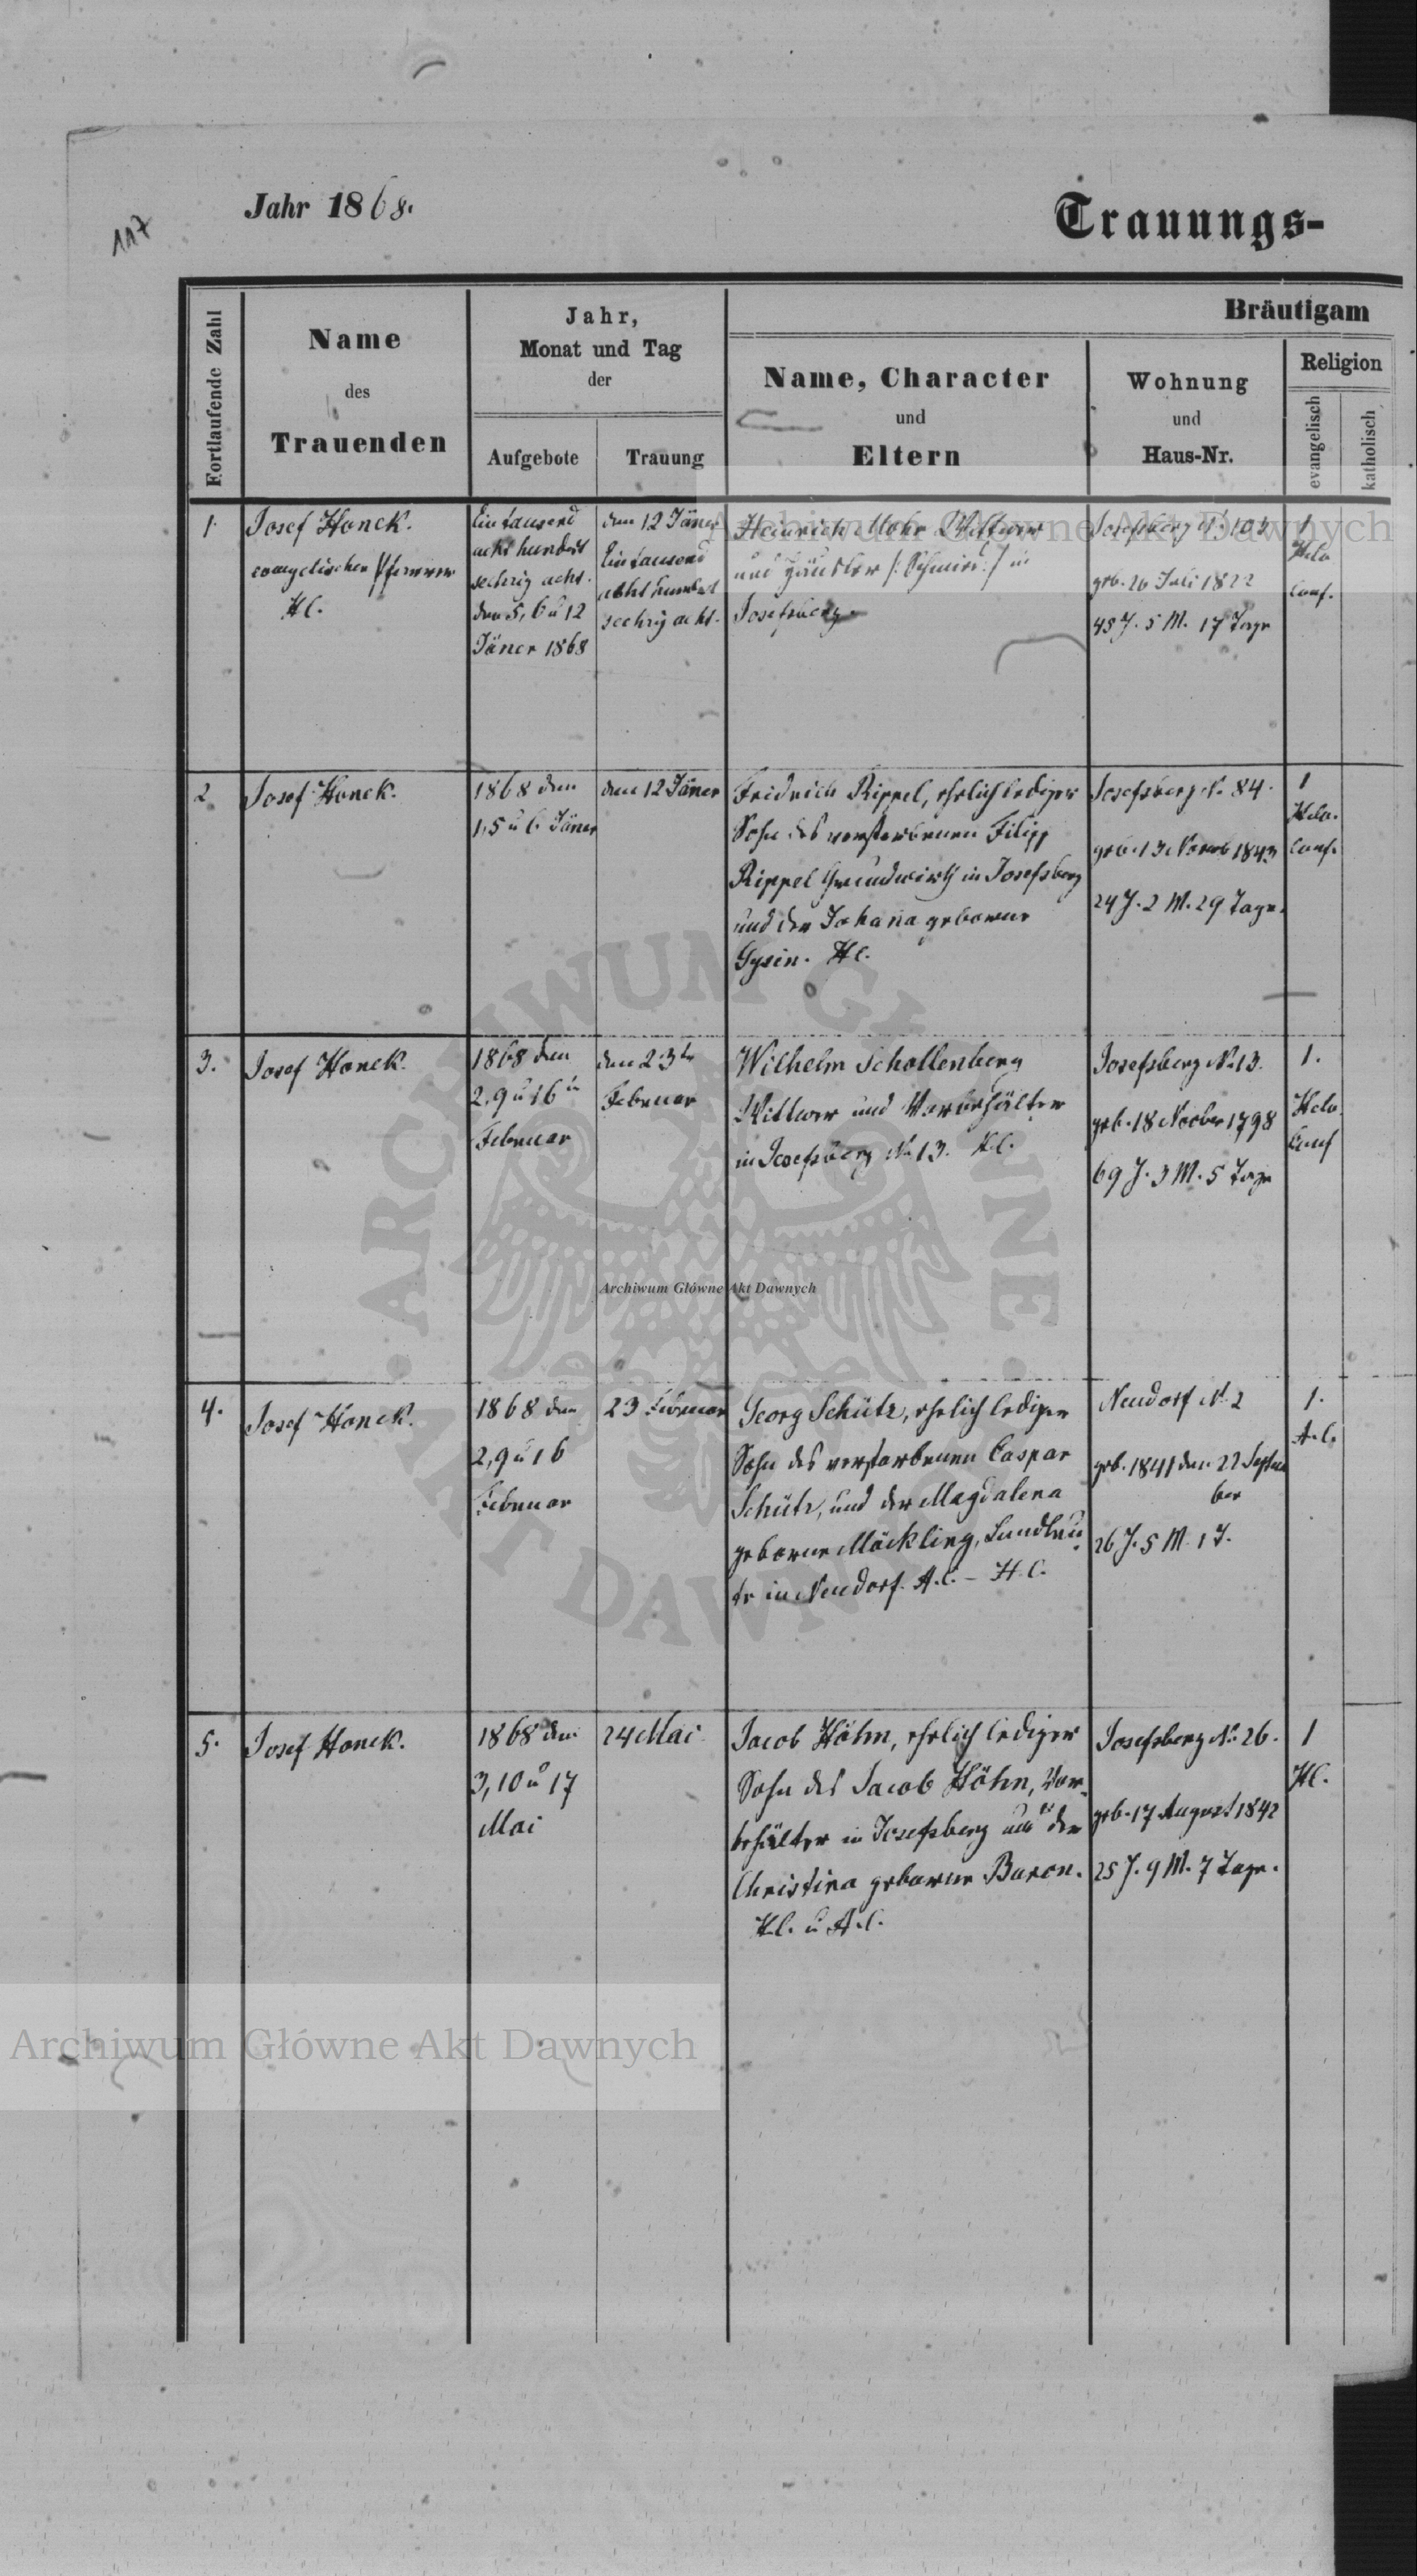 117
Jahr 1868.
Trauungs-
Fortlaufende Zahl
Name
des
Trauenden
Jahr,
Monat und Tag
der
Aufgebote
Trauung
Bräutigam
Name, Character
und
Eltern
Wohnung
und
Haus-Nr.
Religion
evangelisch
katholisch
1.
Josef Honck.
evangelischer Pfarrer
HC.
Ein tausend
acht hundert
sechzig acht.
den 5, 6 u 12
Jäner 1868
den 12 Jäner
Ein tausend
acht hundert
sechzig acht.
Heinrich Mohr Wittwer
und Häusler /: Schmied :/ in
Josefsberg.
Josefsberg N. 104
geb. 26 Juli 1822
45 J. 5 M. 17 Tage
1
Helv.
Conf.
2.
Josef Honck.
1868 den
1, 5 u 6 Jäner
den 12 Jäner
Fridrich Rippel, ehrlich lediger
Sohn des verstorbenen Filipp
Rippel Grundwirth in Josefsberg
und der Johana geborene
Gysin. HC.
Josefsberg N. 84.
geb. 13 Novemb 1843
24 J. 2 M. 29 Tage.
1
Helv.
Conf.
3.
Josef Honck.
1868 den
2, 9 u 16
Februar
den 23
Februar
Wilhelm Schollenberg
Wittwer und Vorbehälter
in Josefsberg N. 13. H.C.
Josefsberg N. 13.
geb. 18 November 1798
69 J. 3 M. 5 Tage
1.
Helv.
Conf
4.
Josef Honck.
1868 den
2, 9 u 16
Februar
23 Februar
Georg Schütz, ehrlich lediger
Sohn des verstorbenen Caspar
Schütz, und der Magdalena
geborne Möckling, Landleu
te in Neudorf. A.C. – H.C.
Neudorf N. 2
geb. 1841 den 22 Septem
ber
26 J. 5 M. 1 T.
1.
A.C.
5.
Josef Honck.
1868 den
3, 10 u 17
Mai
24 Mai
Jacob Höhn, ehrlich lediger
Sohn des Jacob Höhn, Vor-
behälter in Josefsberg und der
Christina geborne Baron.
H.C. u A.C.
Josefsberg N. 26.
geb. 17 August 1842
25 J. 9 M. 7 Tage.
1
HC.
Archiwum Główne Akt Dawnych
ARCHIWUM GŁÓWNE AKT DAWNYCH
Archiwum Główne Akt Dawnych
Archiwum Główne Akt Dawnych